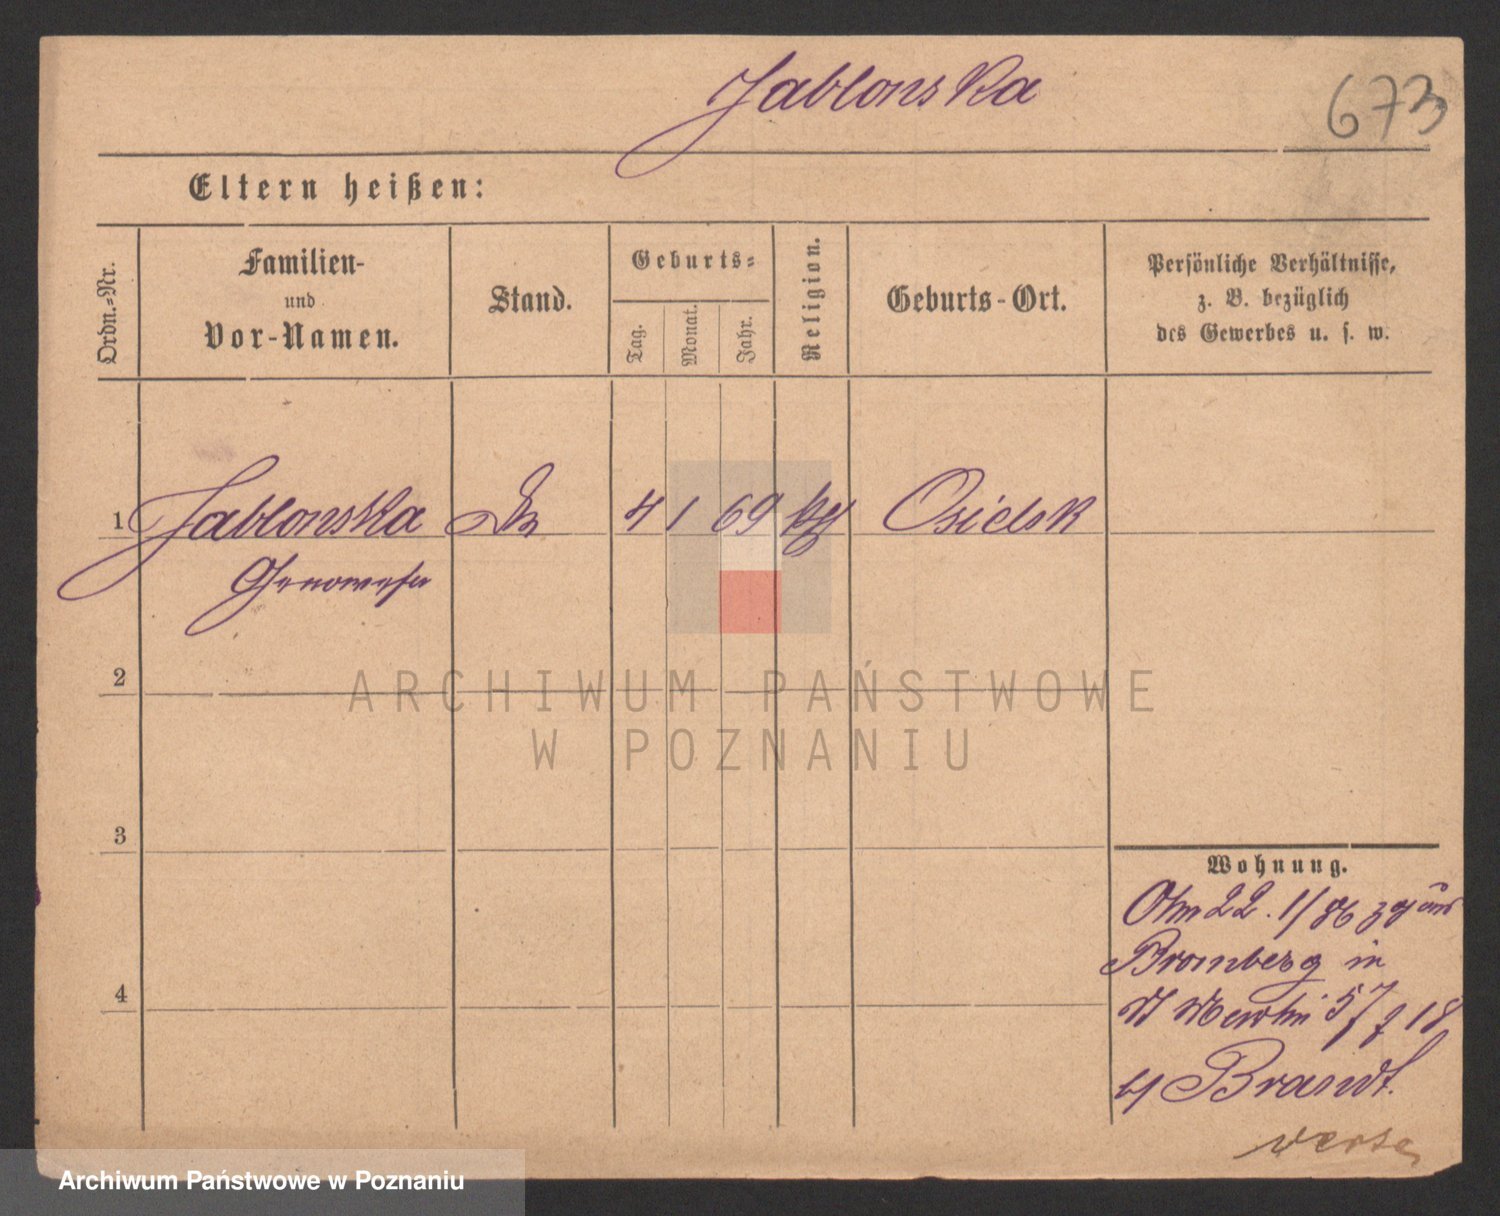 Jablonska
673
Eltern heißen:
Ordn.-Nr.
Familien-
und
Vor-Namen.
Stand.
Geburts-
Tag.
Monat.
Jahr.
Religion.
Geburts-Ort.
Persönliche Verhältnisse,
z. B. bezüglich
des Gewerbes u. s. w.
1 Jablonska 4 1 69 Osielsk
Genowefa
2
ARCHIWUM PAŃSTWOWE
W POZNANIU
3
Wohnung.
22. 1/86
Bromberg in
4
57 18
b/ Brandt.
Archiwum Państwowe w Poznaniu